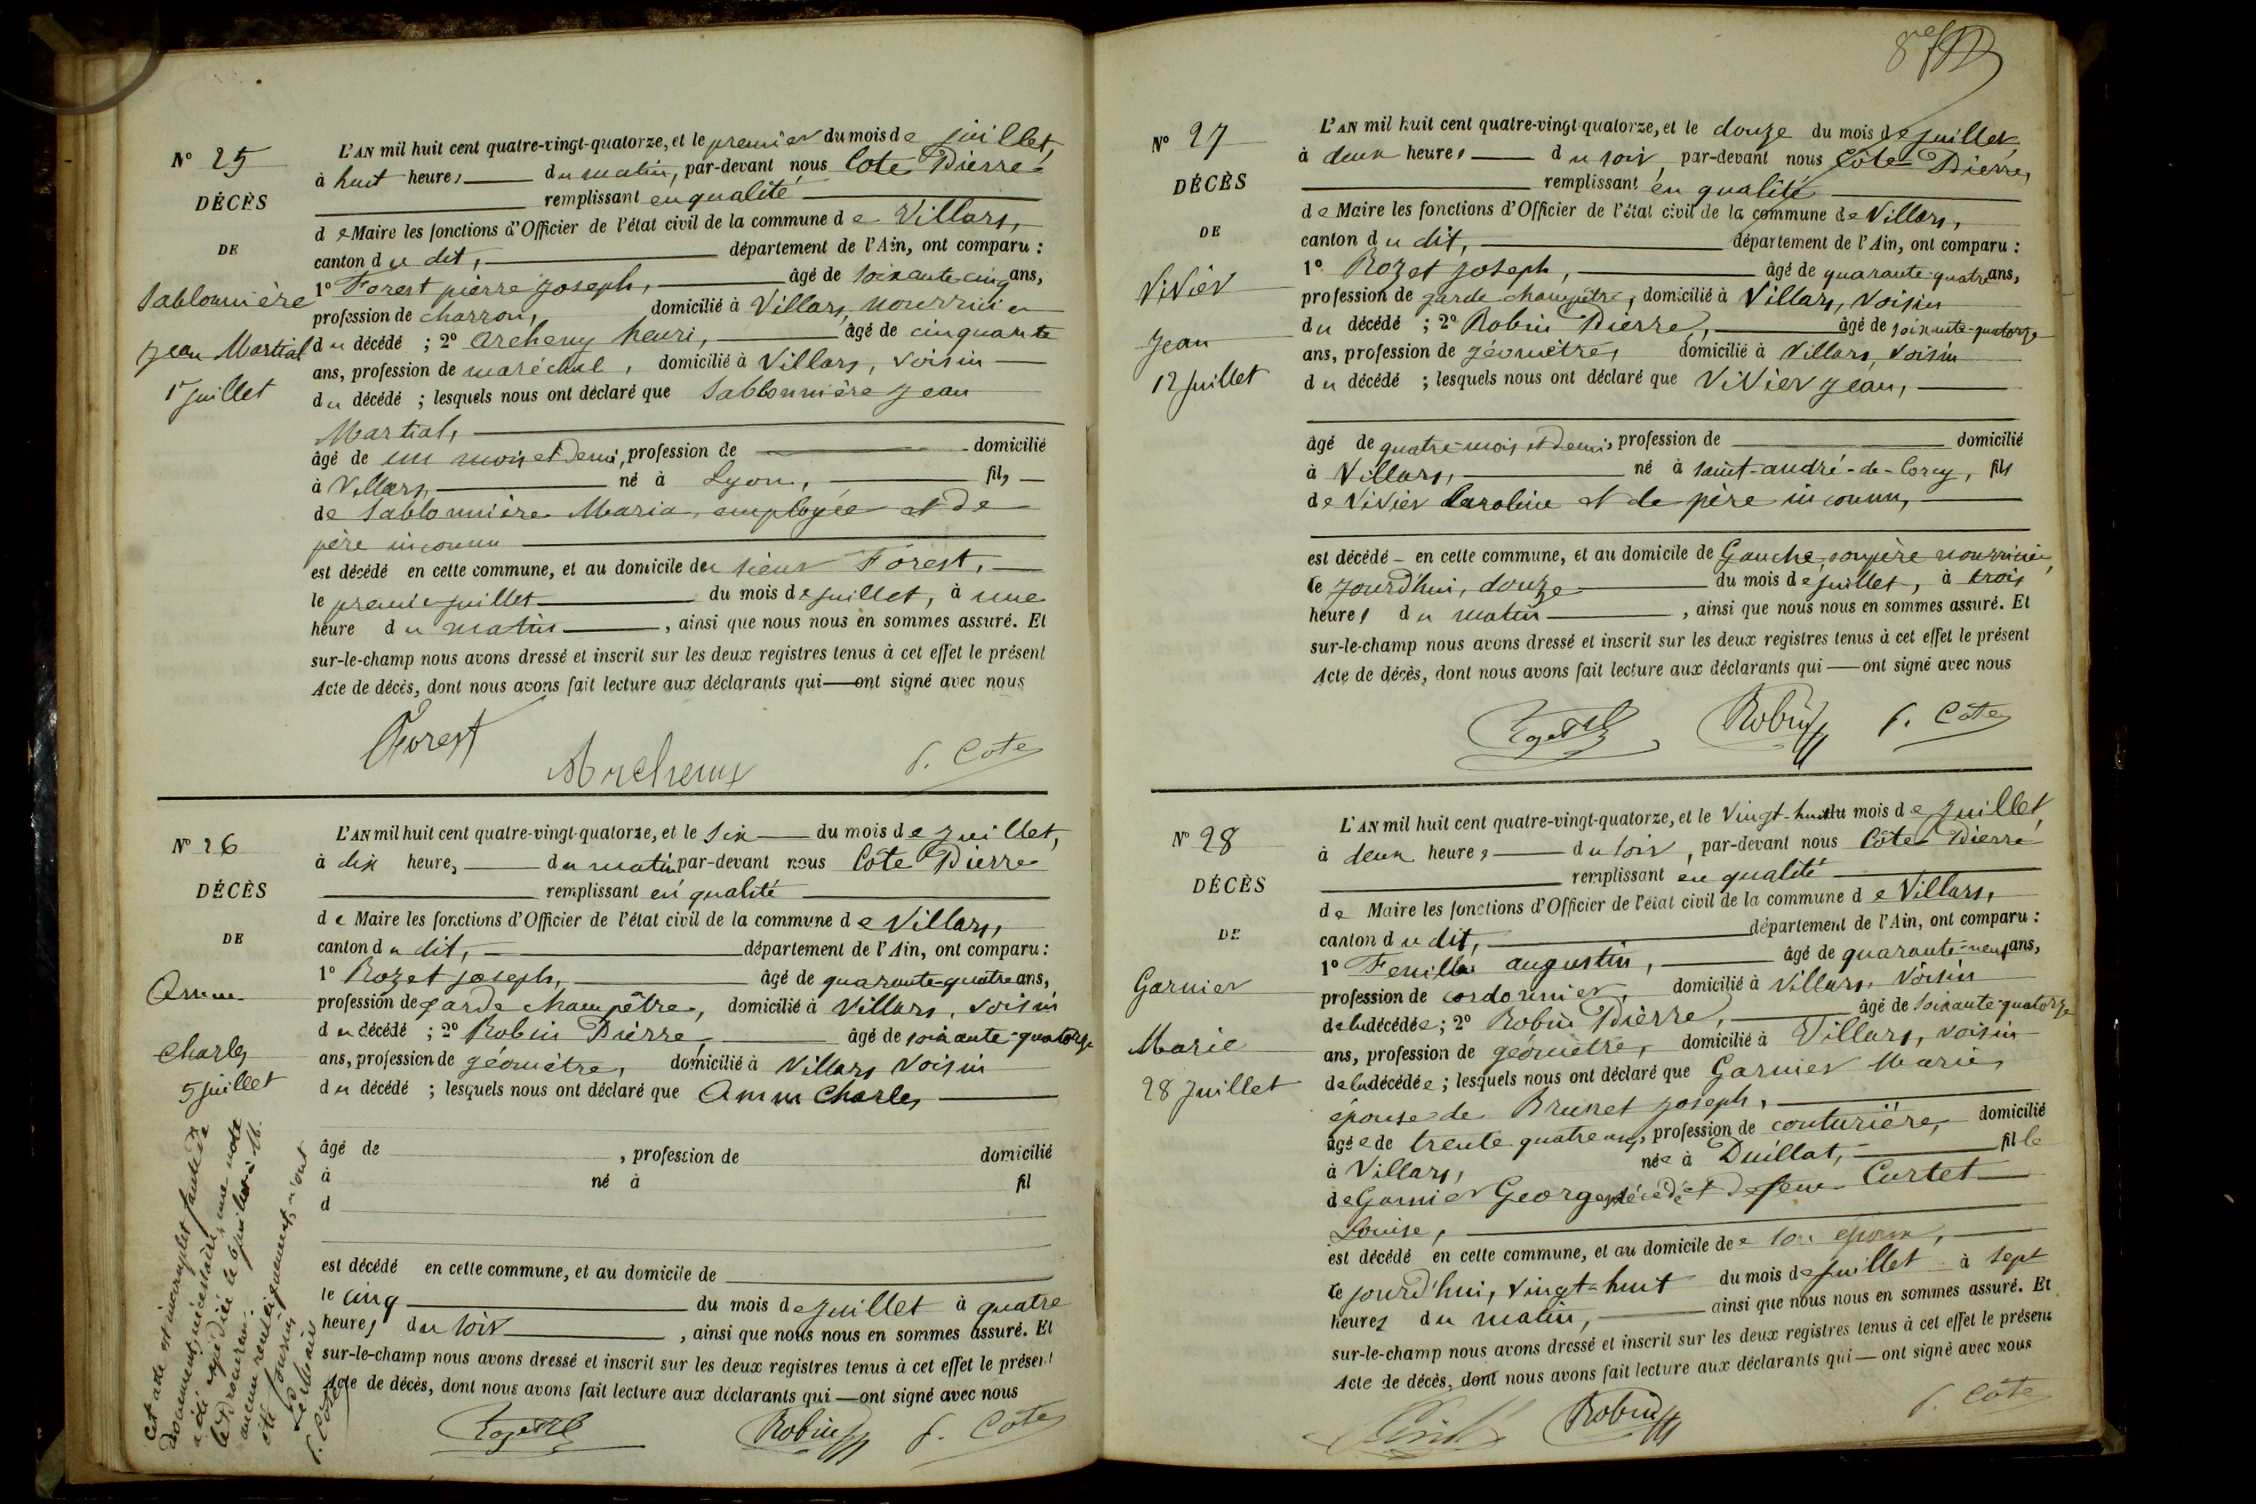 N° 25
DÉCÈS
DE
Sablonnière
Jean Martial
1er Juillet
L'AN mil huit cent quatre-vingt-quatorze, et le premier du mois de juillet,
à huit heures du matin, par-devant nous Cote Pierre
remplissant en qualité
de Maire les fonctions d'Officier de l'état civil de la commune de Villars,
canton du dit, département de l'Ain, ont comparu :
1° Forest pierre joseph, âgé de soixante-cinq ans,
profession de charron, domicilié à Villars, nourricier
du décédé ; 2° Archeny henri, âgé de cinquante
ans, profession de maréchal, domicilié à Villars, voisin
du décédé ; lesquels nous ont déclaré que Sablonnière Jean
Martial,
âgé de un mois et demi, profession de domicilié
à Villars, né à Lyon, fils
de Sablonnière Maria, employée et de
père inconnu
est décédé en cette commune, et au domicile du sieur Forest,
le premier juillet du mois de juillet, à une
heure du matin, ainsi que nous nous en sommes assuré. Et
sur-le-champ nous avons dressé et inscrit sur les deux registres tenus à cet effet le présent
Acte de décès, dont nous avons fait lecture aux déclarants qui ont signé avec nous
Forest
Archeny
P. Cote
N° 26
DÉCÈS
DE
Charles
5 Juillet
Cet acte est incomplet faute de
documents nécessaires; une note
a été expédiée le 6 juillet à M.
le Procureur;
aucun renseignement n'ont
été fournis
Le Maire
P. Cote
L'AN mil huit cent quatre-vingt-quatorze, et le six du mois de juillet,
à dix heures du matin par-devant nous Côte Pierre
remplissant en qualité
de Maire les fonctions d'Officier de l'état civil de la commune de Villars,
canton du dit, département de l'Ain, ont comparu :
1° Rozet joseph, âgé de quarante-quatre ans,
profession de garde champêtre, domicilié à Villars, voisin
du décédé ; 2° Robin Pierre, âgé de soixante-quatorze
ans, profession de géomètre, domicilié à Villars voisin
du décédé ; lesquels nous ont déclaré que Charles
âgé de , profession de domicilié
à né à fil
d
est décédé en cette commune, et au domicile de
le cinq du mois de juillet à quatre
heures du soir, ainsi que nous nous en sommes assuré. Et
sur-le-champ nous avons dressé et inscrit sur les deux registres tenus à cet effet le présent
Acte de décès, dont nous avons fait lecture aux déclarants qui ont signé avec nous
Rozet
Robin
P. Cote
8e
N° 27
DÉCÈS
DE
Vivier
Jean
12 Juillet
L'AN mil huit cent quatre-vingt-quatorze, et le douze du mois de juillet,
à deux heures du soir, par-devant nous Côte Pierre,
remplissant en qualité
de Maire les fonctions d'Officier de l'état civil de la commune de Villars,
canton du dit, département de l'Ain, ont comparu :
1° Rozet joseph, âgé de quarante-quatre ans,
profession de garde champêtre, domicilié à Villars, voisin
du décédé ; 2° Robin Pierre, âgé de soixante-quatorze
ans, profession de géomètre, domicilié à Villars, voisin
du décédé ; lesquels nous ont déclaré que Vivier jean,
âgé de quatre mois et demi, profession de domicilié
à Villars, né à saint-andré-de-Corcy, fils
de Vivier Caroline et de père inconnu,
est décédé en cette commune, et au domicile de Gauche, son père nourricier,
ce jourd'hui, douze du mois de juillet, à trois
heures du matin, ainsi que nous nous en sommes assuré. Et
sur-le-champ nous avons dressé et inscrit sur les deux registres tenus à cet effet le présent
Acte de décès, dont nous avons fait lecture aux déclarants qui ont signé avec nous
Rozet
Robin
P. Cote
N° 28
DÉCÈS
DE
Garnier
Marie
28 Juillet
L'AN mil huit cent quatre-vingt-quatorze, et le vingt-huit du mois de juillet,
à deux heures du soir, par-devant nous Côte Pierre
remplissant en qualité
de Maire les fonctions d'Officier de l'état civil de la commune de Villars,
canton du dit, département de l'Ain, ont comparu :
1° Feuillé augustin, âgé de quarante-neuf ans,
profession de cordonnier, domicilié à Villars, voisin
de la décédée ; 2° Robin Pierre, âgé de soixante-quatorze
ans, profession de géomètre, domicilié à Villars, voisin
de la décédée ; lesquels nous ont déclaré que Garnier Marie
épouse de Brunet joseph,
âgée de trente quatre ans, profession de couturière, domicilié
à Villars, née à Druillat, fille
de Garnier Georges, décédé et de feue Curtet
Louise,
est décédé en cette commune, et au domicile de son époux,
ce jourd'hui, vingt-huit du mois de juillet à sept
heures du matin, ainsi que nous nous en sommes assuré. Et
sur-le-champ nous avons dressé et inscrit sur les deux registres tenus à cet effet le présent
Acte de décès, dont nous avons fait lecture aux déclarants qui ont signé avec nous
Robin
P. Cote